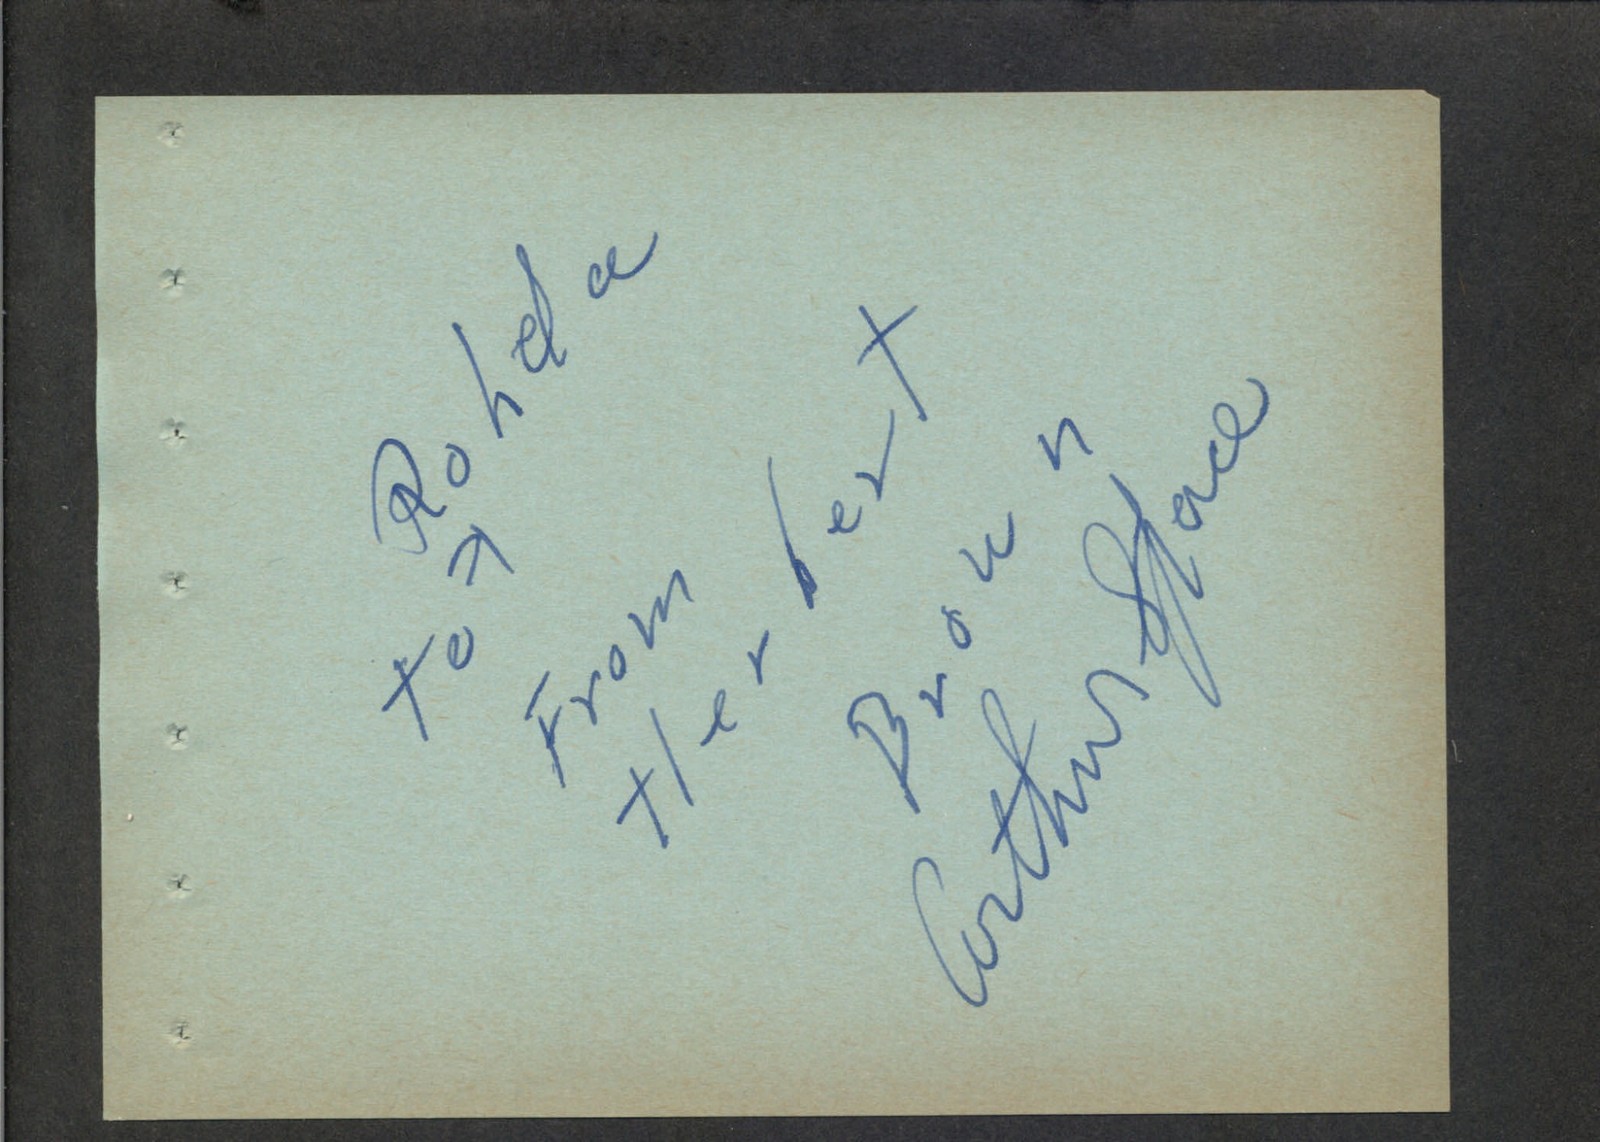 to Rohda
From
Herbert
Brown
Arthur Space